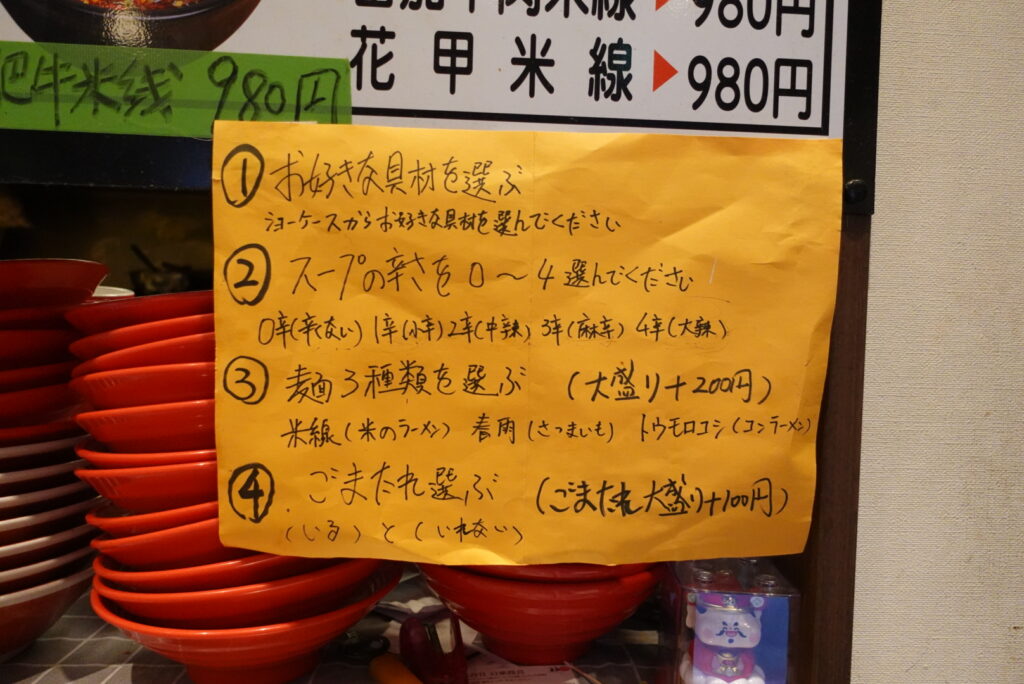 米線▶980円
花甲米線▶980円
肥牛米线 980円
① お好きな具材を選ぶ
ショーケースからお好きな具材を選んでください
② スープの辛さを0〜4選んでください
0辛(辛くない) 1辛(小辛) 2辛(中辣) 3辛(麻辛) 4辛(大辣)
③ 麺3種類を選ぶ (大盛り+200円)
米線(米のラーメン) 春雨(さつまいも) トウモロコシ(コンラーメン)
④ ごまたれ選ぶ (ごまたれ大盛り+100円)
(いる)と(いれない)